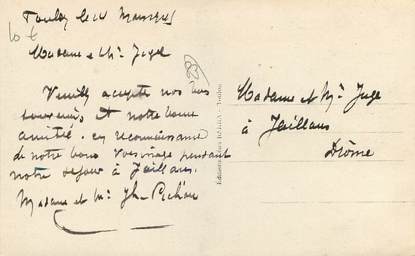 Toulon le 14
Madame et Mr Juge
Veuillez accepter nos bons
souvenirs et notre bonne
amitié en reconnaissance
de notre bons voisinage pendant
notre séjour à Jaillans.
Madame et Mr
Madame et Mr Juge
à Jaillans
Drôme